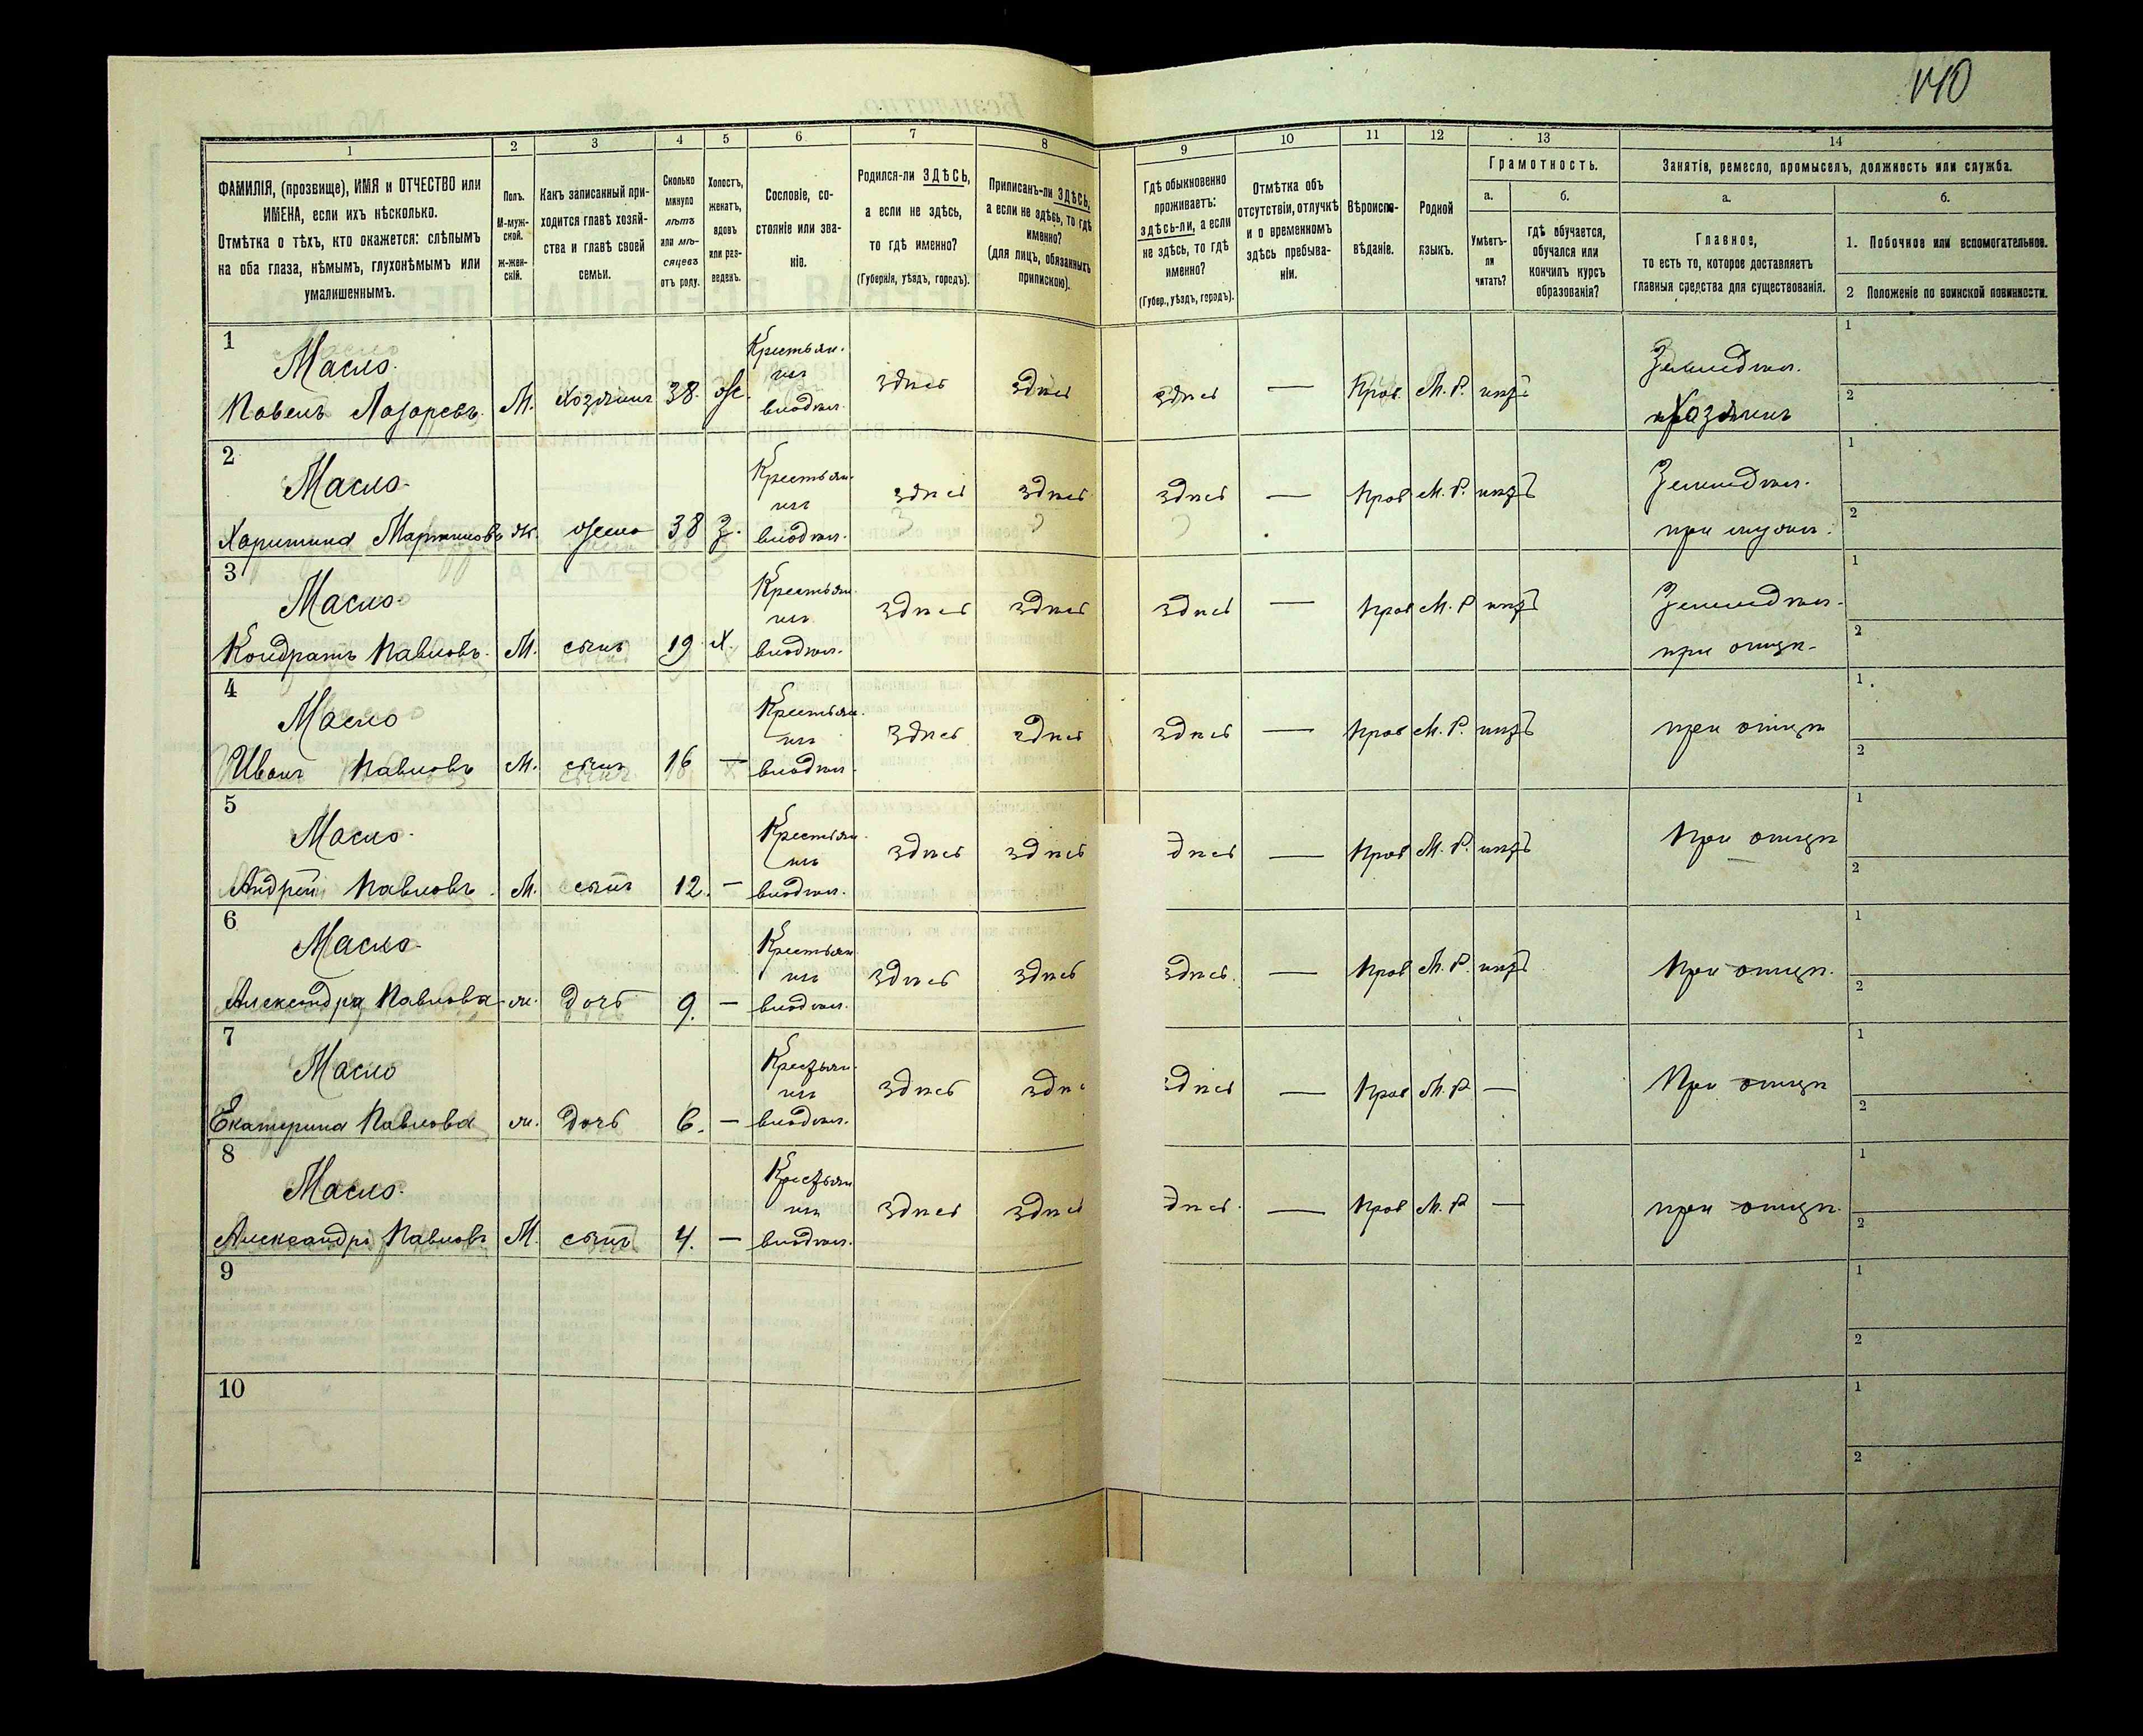 140
1 2 3 4 5 6 7 8 9 10 11 12 13 14
ФАМИЛІЯ, (прозвище), ИМЯ и ОТЧЕСТВО или
ИМЕНА, если ихъ нѣсколько.
Отмѣтка о тѣхъ, кто окажется: слѣпымъ
на оба глаза, нѣмымъ, глухонѣмымъ или
умалишеннымъ.
Полъ.
М-муж-
ской.
Ж-жен-
скій.
Какъ записанный при-
ходится главѣ хозяй-
ства и главѣ своей
семьи.
Сколько
минуло
лѣтъ
или мѣ-
сяцевъ
отъ роду.
Холостъ,
женатъ,
вдовъ
или раз-
веденъ.
Сословіе, со-
стояніе или зва-
ніе.
Родился-ли ЗДѢСЬ,
а если не здѣсь,
то гдѣ именно?
(Губернія, уѣздъ, городъ).
Приписанъ-ли ЗДѢСЬ,
а если не здѣсь, то гдѣ
именно?
(для лицъ, обязанныхъ
припискою).
Гдѣ обыкновенно
проживаетъ:
здѣсь-ли, а если
не здѣсь, то гдѣ
именно?
(Губер., уѣздъ, городъ).
Отмѣтка объ
отсутствіи, отлучкѣ
и о временномъ
здѣсь пребыва-
ніи.
Вѣроиспо-
вѣданіе.
Родной
языкъ.
Грамотность.
а.
Умѣетъ-
ли
читать?
б.
гдѣ обучается,
обучался или
кончилъ курсъ
образованія?
Занятія, ремесло, промыселъ, должность или служба.
а.
Главное,
то есть то, которое доставляетъ
главныя средства для существованія.
б.
1. Побочное или вспомогательное.
2 Положеніе по воинской повинности.
1
Масло.
Павелъ Лазаревъ. М. Хозяинъ 38. ж.
Крестьян.
изъ
владѣл.
здѣсь здѣсь здѣсь — Прав. М. Р. нѣтъ
Земледѣл.
Хозяинъ
1
2
2
Масло.
Харитина Мартинова ж. жена 38 З.
Крестьян.
изъ
владѣл.
здѣсь здѣсь здѣсь — Прав М. Р. нѣтъ
Земледѣл.
при мужѣ.
1
2
3
Масло.
Кондратъ Павловъ. М. сынъ 19 Х.
Крестьян.
изъ
владѣл.
здѣсь здѣсь здѣсь — Прав М. Р нѣтъ
Земледѣл.
при отцѣ.
1
2
4
Масло
Иванъ Павловъ М. сынъ 16 —
Крестьян.
изъ
владѣл.
здѣсь здѣсь здѣсь — Прав М. Р. нѣтъ
при отцѣ
1
2
5
Масло.
Андрей Павловъ. М. сынъ 12. —
Крестьян.
изъ
владѣл.
здѣсь здѣсь дѣсь — Прав М. Р. нѣтъ
При отцѣ
1
2
6
Масло.
Александра Павлова ж. дочь 9. —
Крестьян
изъ
владѣл.
здѣсь здѣсь здѣсь. — Прав М. Р. нѣтъ
При отцѣ.
1
2
7
Масло
Екатерина Павлова ж. дочь 6. —
Крестьян.
изъ
владѣл.
здѣсь здѣ здѣсь — Прав М. Р. —
При отцѣ
1
2
8
Масло.
Александръ Павловъ М. сынъ 4. —
Крестьян
изъ
владѣл.
здѣсь здѣсь дѣсь. — Прав М. Р —
при отцѣ.
1
2
9
1
2
10
1
2